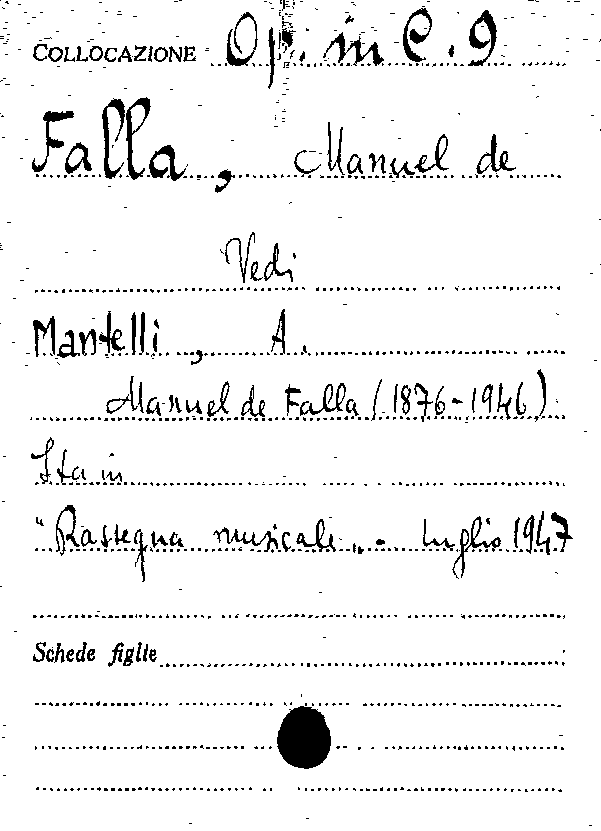 COLLOCAZIONE Op. in C. 9
Falla, Manuel de
Vedi
Mantelli, A.
Manuel de Falla (1876-1946)
Sta in
"Rassegna musicale„ - luglio 1947
Schede figlie